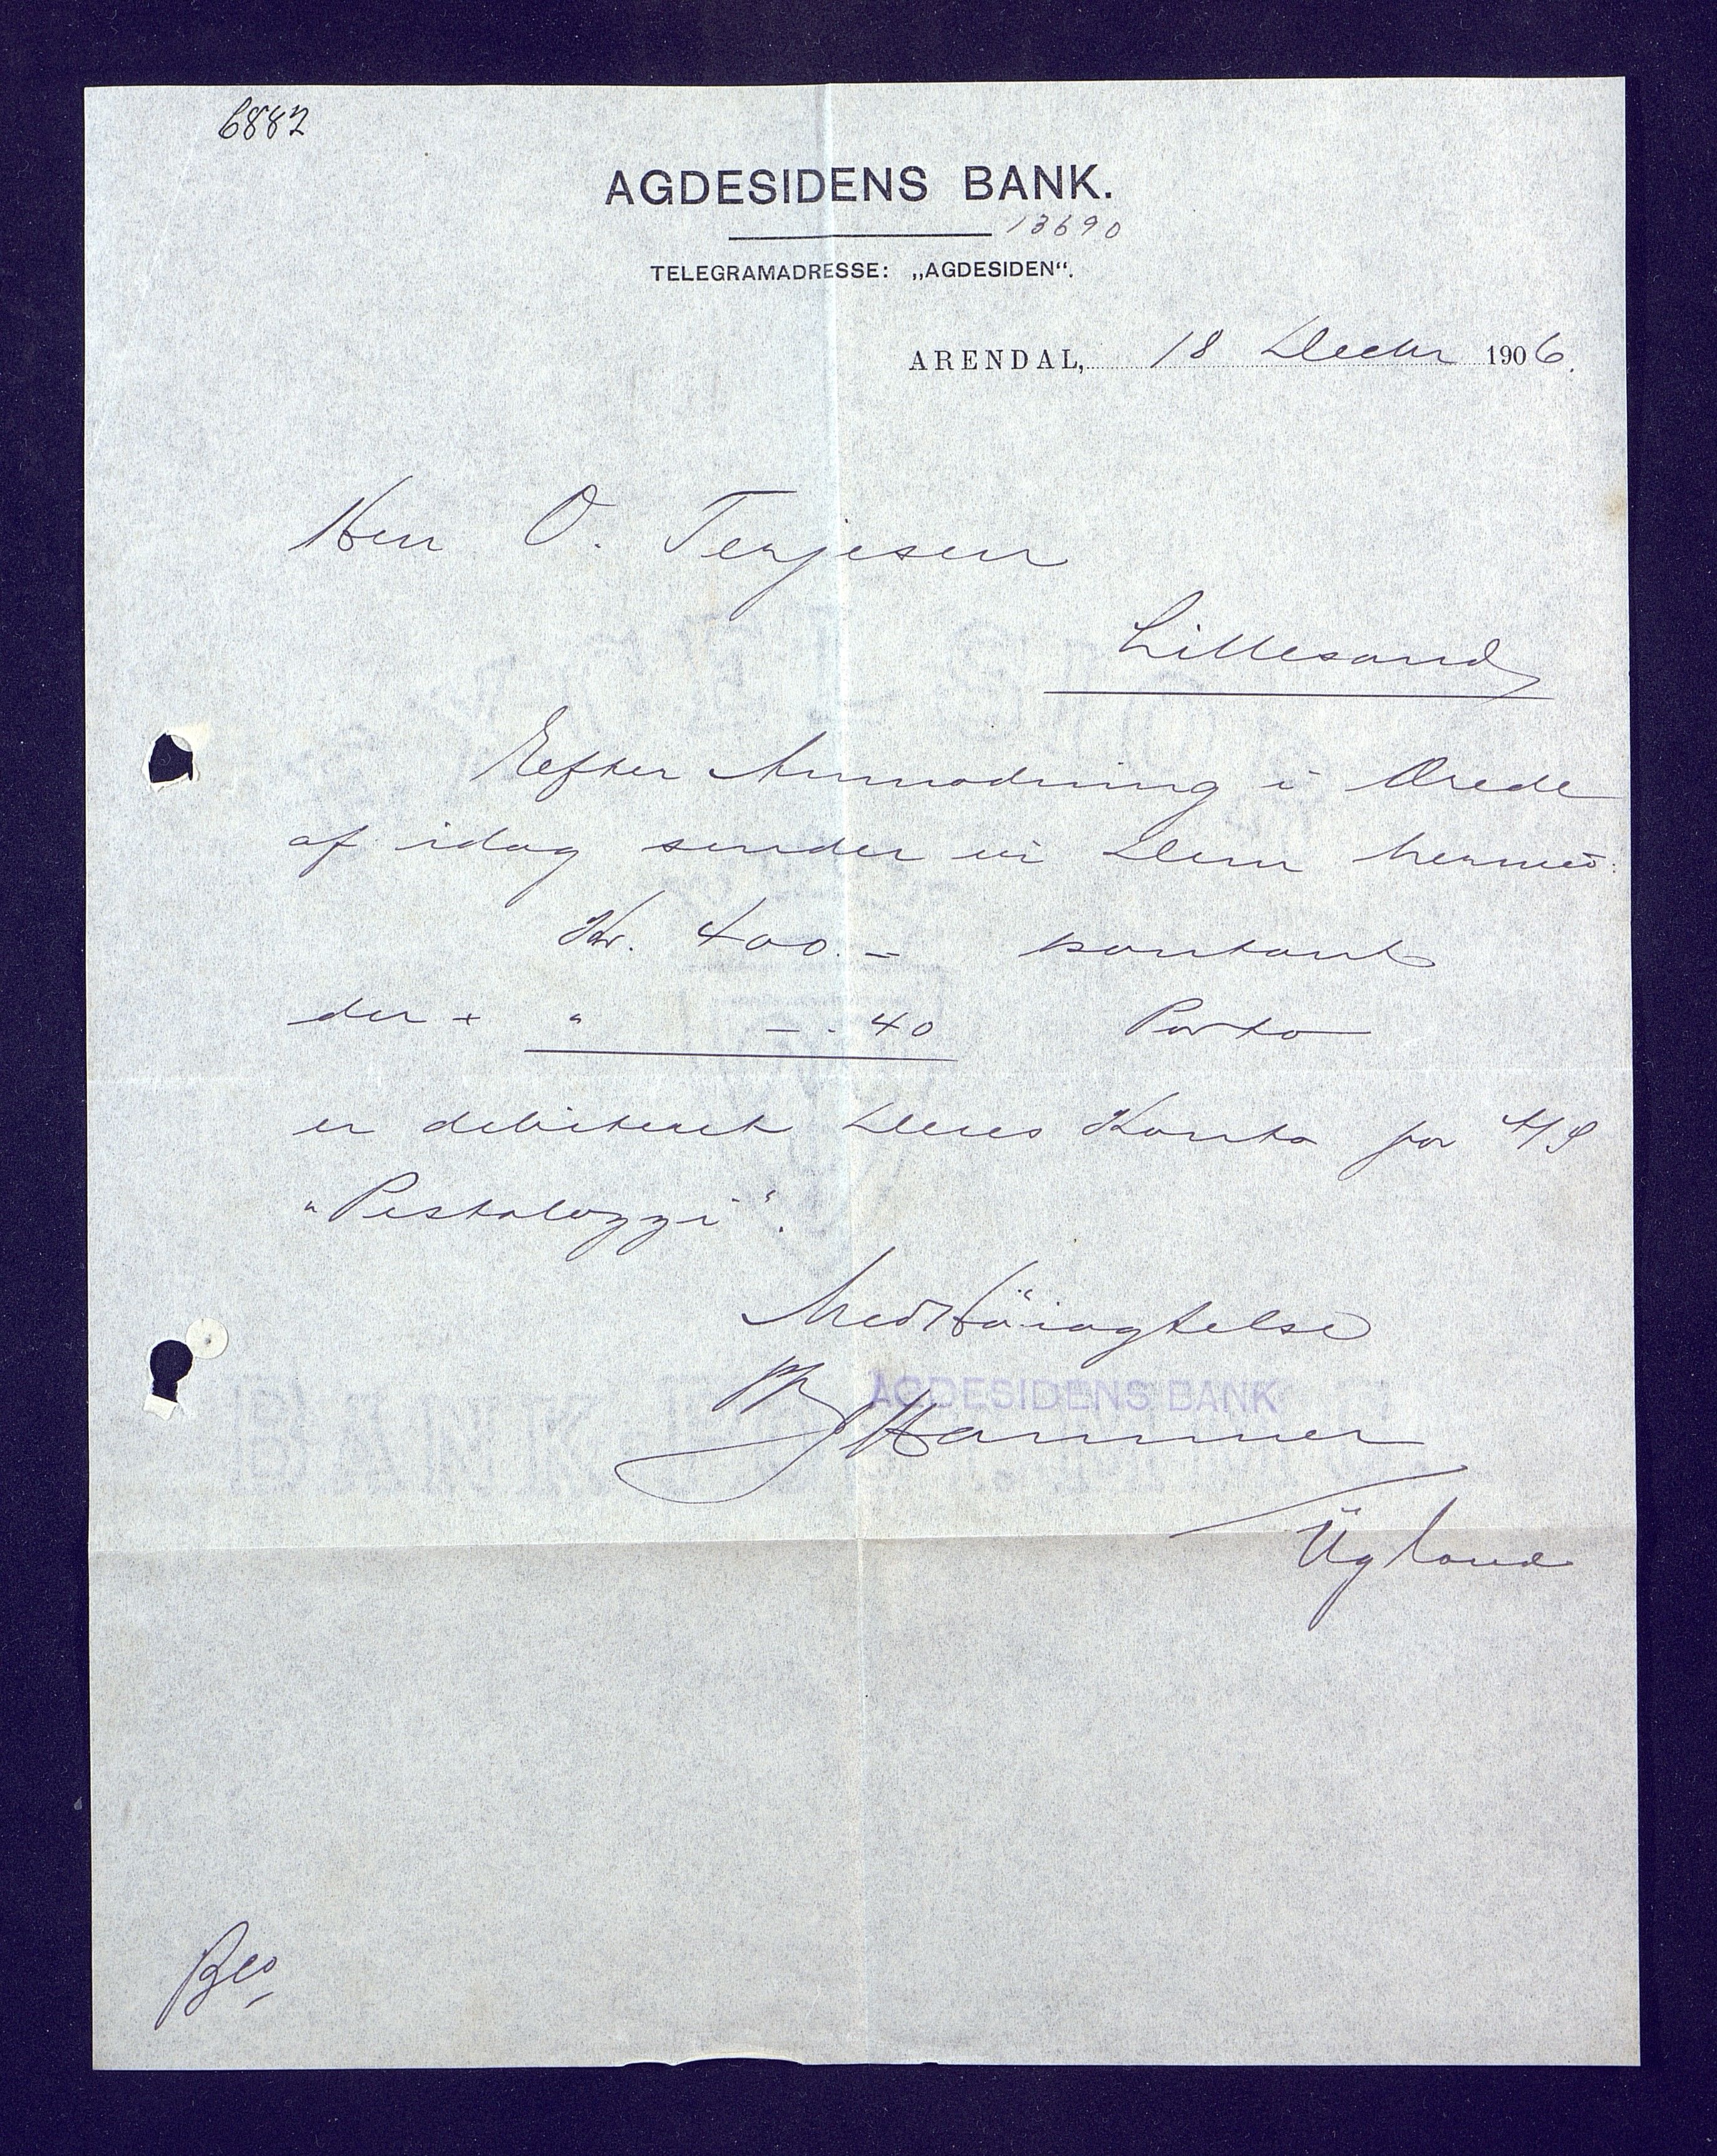 6882
AGDESIDENS BANK.
13690
TELEGRAMADRESSE: „AGDESIDEN“.
ARENDAL, 18 Decbr 1906.
Herr O. Terjesen
Lillesand
Efter Anmodning i Ærede
af idag sender vi Dem hermed:
Kr. 400.– kontant
der + " –.40 Porto
er debiteret Deres Konto for A/S
"Pestalozzi".
Med Høiagtelse
pp AGDESIDENS BANK
Hammer
Ugland